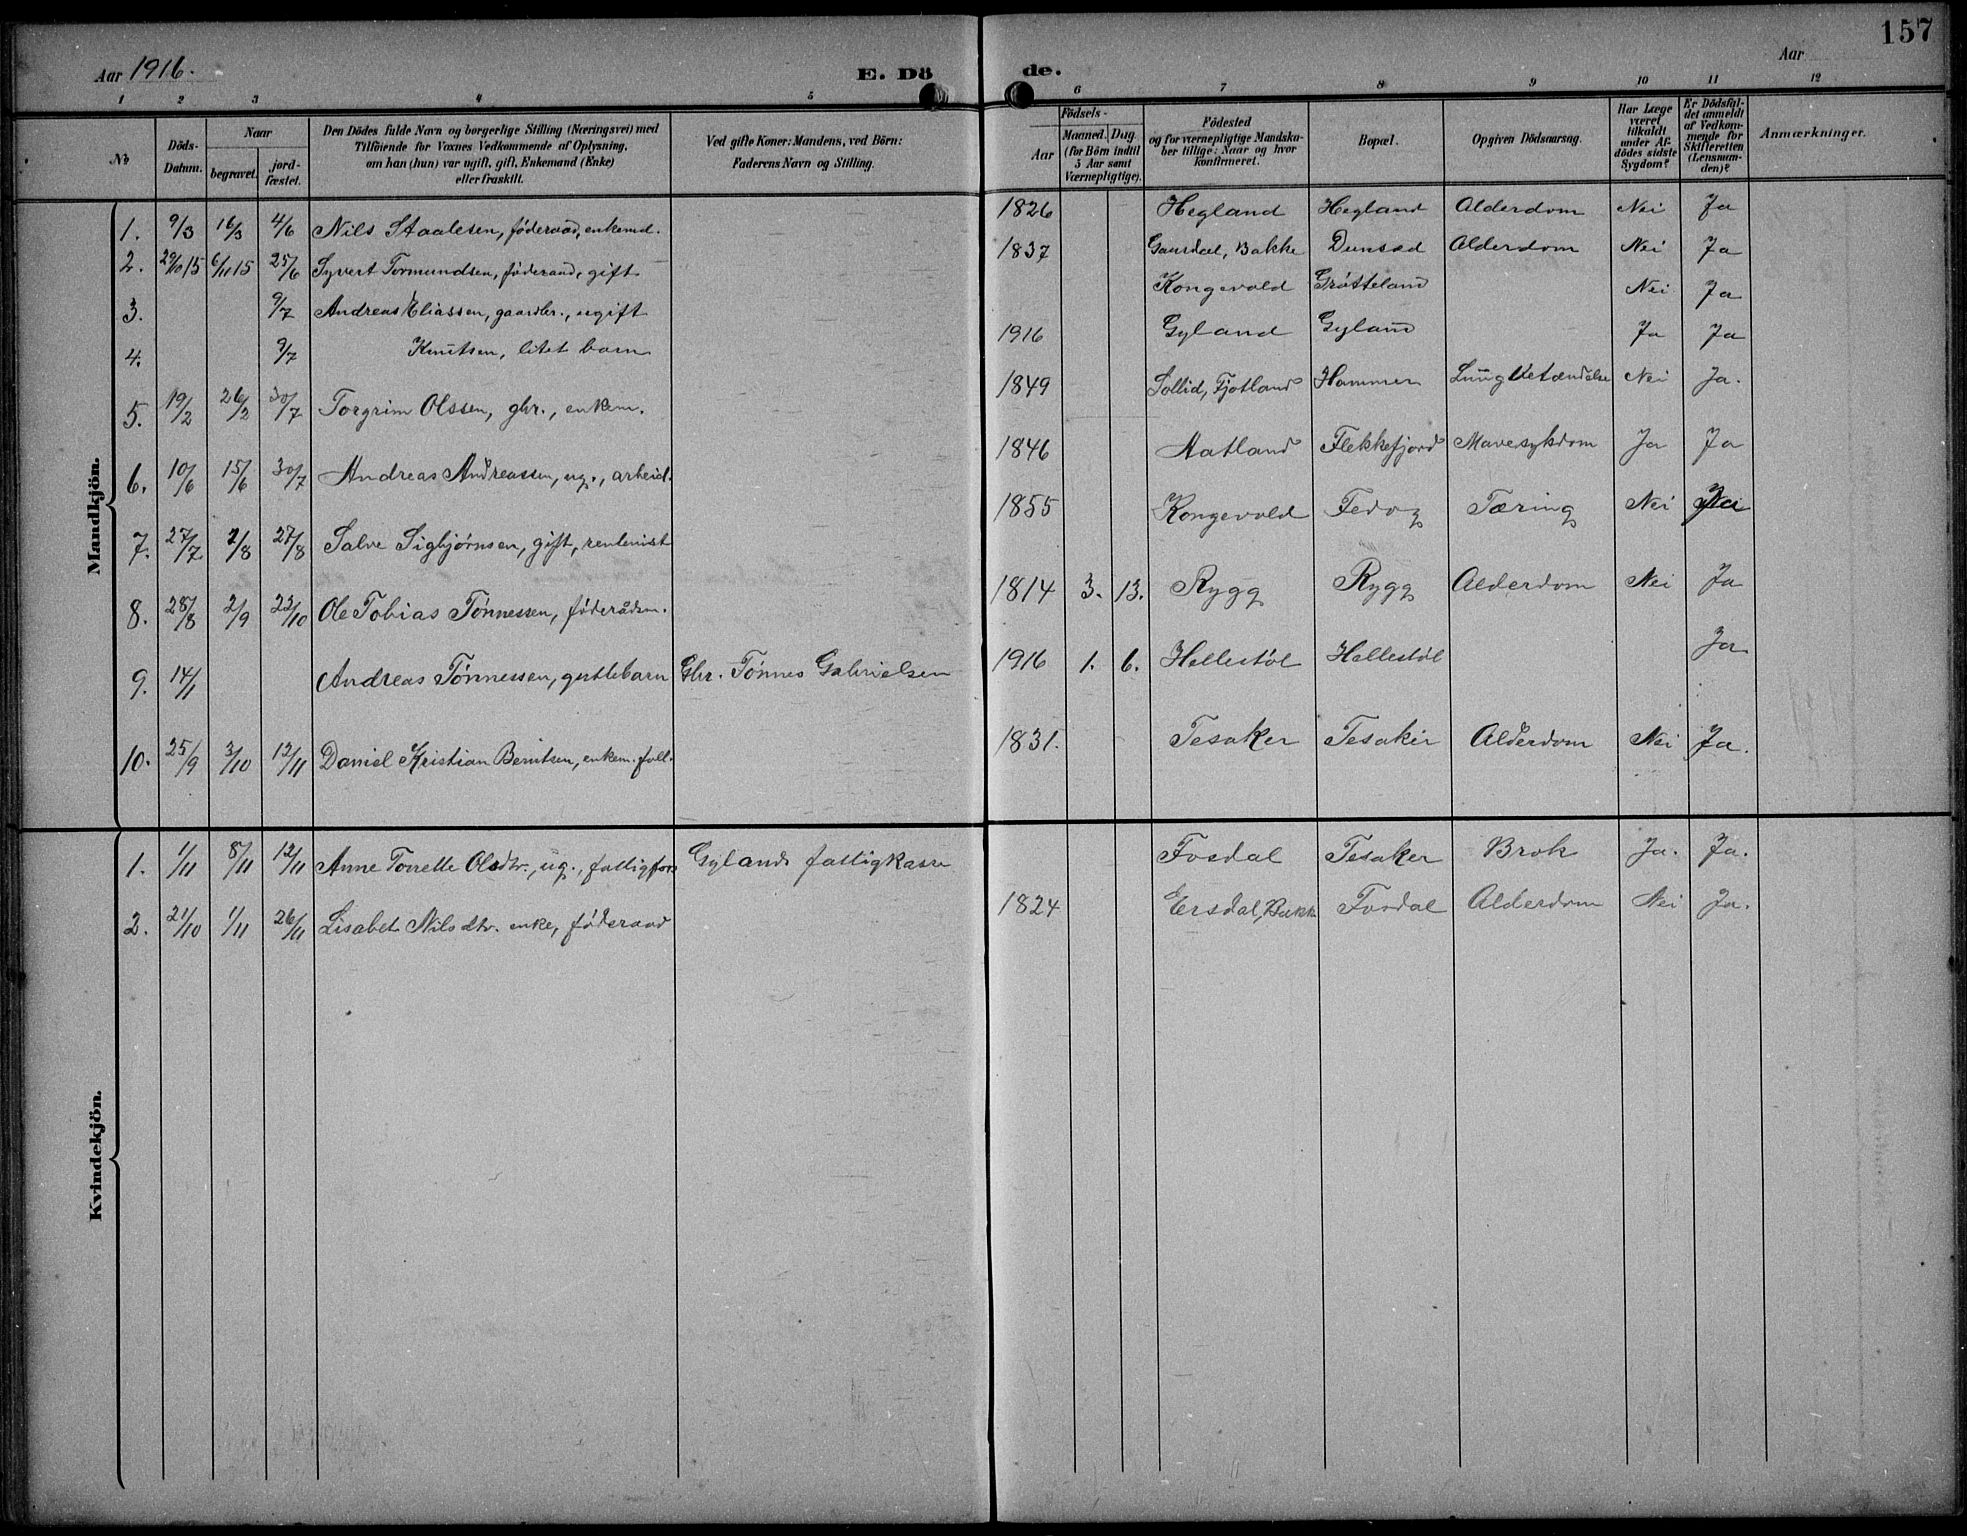 157
Aar 1916.
E. Dö de.
Aar
1 2 3 4 5 6 7 8 9 10 11 12
No
Döds-Datum.
Naar
begravet.
jord-fæstet.
Den Dödes fulde Navn og borgerlige Stilling (Næringsvei) med
Tilföiende for Voxnes Vedkommende af Oplysning,
om han (hun) var ugift, gift, Enkemand (Enke)
eller fraskilt.
Ved gifte Koner: Mandens, ved Börn:
Faderens Navn og Stilling.
Födsels-
Aar
Maaned. Dag
(for Börn indtil
5 Aar samt
Værnepligtige).
Födested
og for værnepligtige Mandska-
ber tillige: Naar og hvor
konfirmeret.
Bopæl.
Opgiven Dödsaarsag.
Har Læge
været
tilkaldt
under Af-
dödes sidste
Sygdom?
Er Dödsfal-
det anmeldt
af Vedkom-
mende for
Skifteretten
(Lensman-
den)?
Anmærkninger.
Mandkjön.
1. 9/3 16/3 4/6 Nils Staalesen, föderaad, enkemd. 1826 Hegland Hegland Alderdom Nei Ja
2. 29/10 15 6/11 15 25/6 Syvert Tormundsen, föderaad, gift 1837 Gausdal, Bakke Dunsæd Alderdom Nei Ja
3. 9/7 Andreas Eliassen, gaardbr., ugift Kongevold Grøtteland Nei Ja
4. 9/7 Knutsen, litet barn 1916 Gyland Gyland Ja Ja
5. 19/2 26/2 30/7 Torgrim Olssen, gbr., enkem. 1849 Sollid, Fjotland Hammer Lungbetændelse Nei Ja.
6. 10/6 15/6 30/7 Andreas Andreassen, ug., arbeid. 1846 Aatland Flekkefjord Mavesykdom Ja Ja
7. 27/7 2/8 27/8 Salve Sigbjørnsen, gift, rentenist 1855 Kongevold Fedog Tæring Nei
8. 28/8 2/9 22/10 Ole Tobias Tønnessen, föderådsm. 1814 3. 13. Rygg Rygg Alderdom Nei Ja
9. 14/1 Andreas Tønnessen, guttebarn Gbr. Tønnes Gabrielsen 1916 1. 6. Hellestøl Hellestøl Ja
10. 25/9 3/10 12/11 Daniel Kristian Berntsen, enkem. 1831. Tesaker Tesaker Alderdom Nei Ja.
Kvindekjön.
1. 1/11 8/11 12/11 Anne Torrette Olsdtr., ug., fattigfors Gylands fattigkasse Fosdal Tesaker Brok Ja. Ja.
2. 21/10 1/11 26/11 Lisabet Nilsdtr. enke, føderaad 1824 Ersdal, Bakk. Fosdal Alderdom Nei Ja.